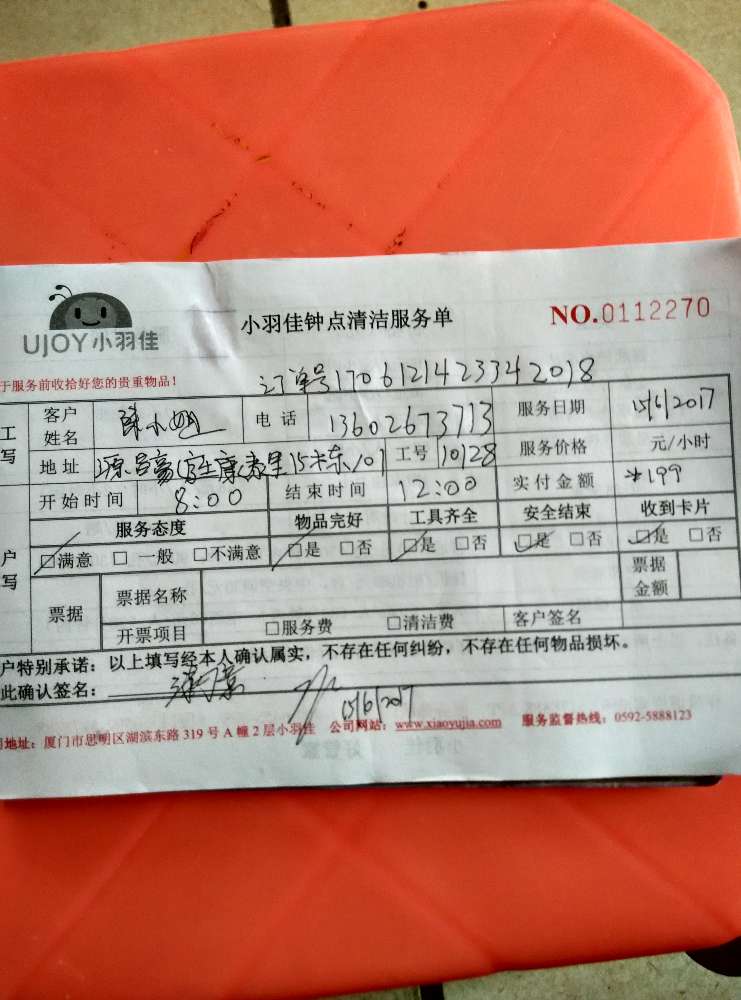 UJOY小羽佳
小羽佳钟点清洁服务单
NO.0112270
于服务前收拾好您的贵重物品!
订单号1706121423342018
工 客户姓名 陈小姐 电话 13602673713 服务日期 15/6/2017
写 地址 工号 10128 服务价格 元/小时
开始时间 8:00 结束时间 12:00 实付金额 *199
服务态度 物品完好 工具齐全 安全结束 收到卡片
户 □满意 □ 一般 □不满意 □是 □否 □是 □否 □是 □否 □是 □否
写 票据 票据名称 票据金额
开票项目 □服务费 □清洁费 客户签名
户特别承诺：以上填写经本人确认属实，不存在任何纠纷，不存在任何物品损坏。
此确认签名： 15/6/2017
地址：厦门市思明区湖滨东路 319 号 A 幢 2 层小羽佳 公司网站：www.xiaoyujia.com 服务监督热线：0592-5888123